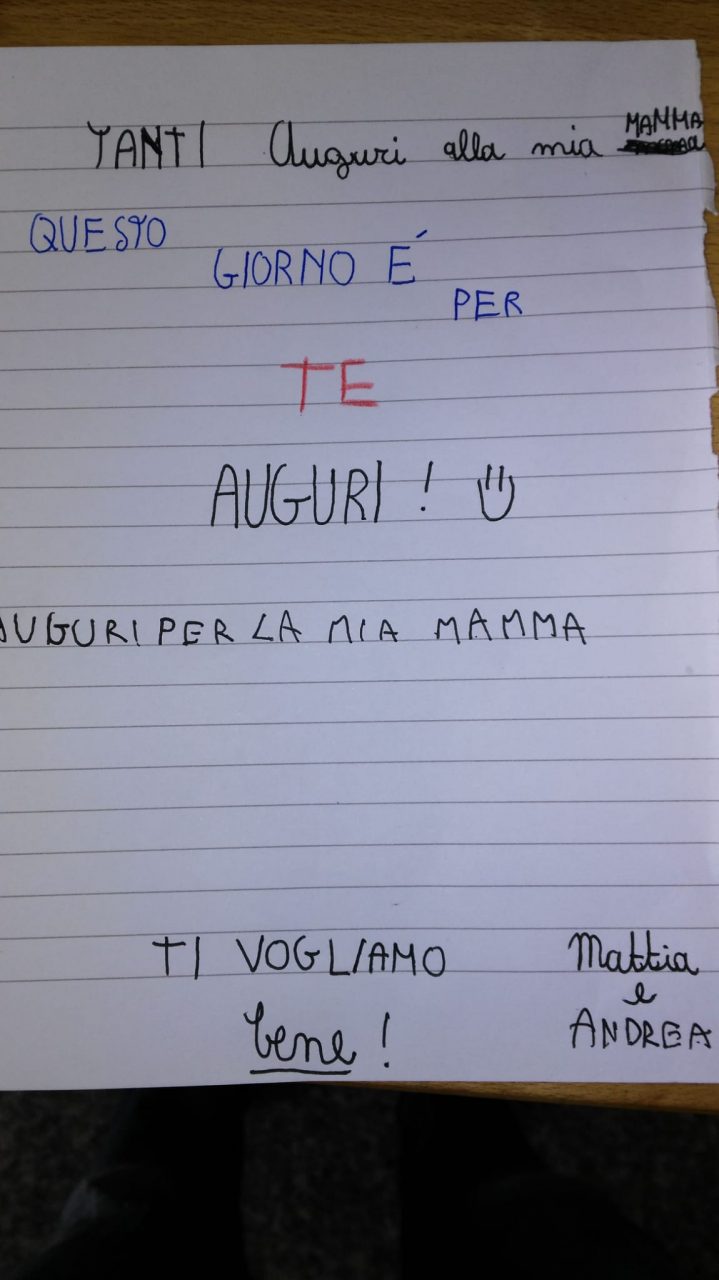 TANTI Auguri alla mia MAMMA
QUESTO
GIORNO É
PER
TE
AUGURI !
AUGURI PER LA MIA MAMMA
TI VOGLIAMO
bene !
Mattia
e
ANDREA